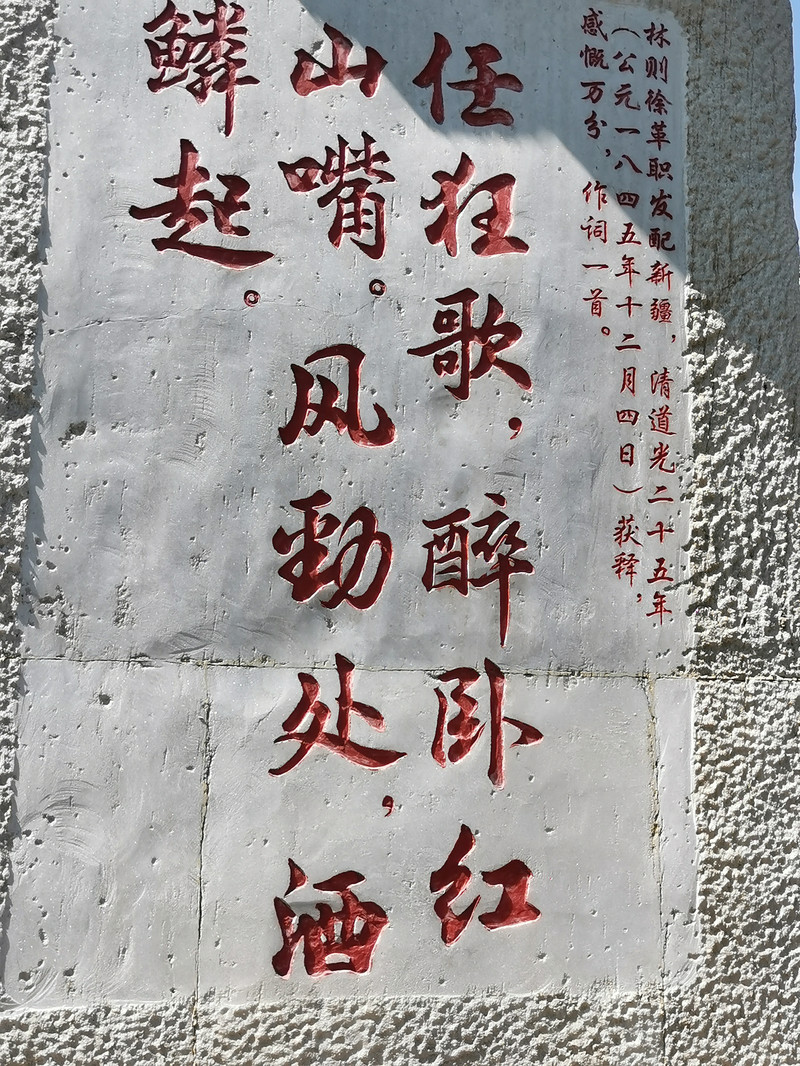 林则徐革职发配新疆，清道光二十五年
（公元一八四五年十二月四日）获释，
感慨万分，作词一首。
任狂歌，醉卧红
山嘴。风劲处，酒
鳞起。